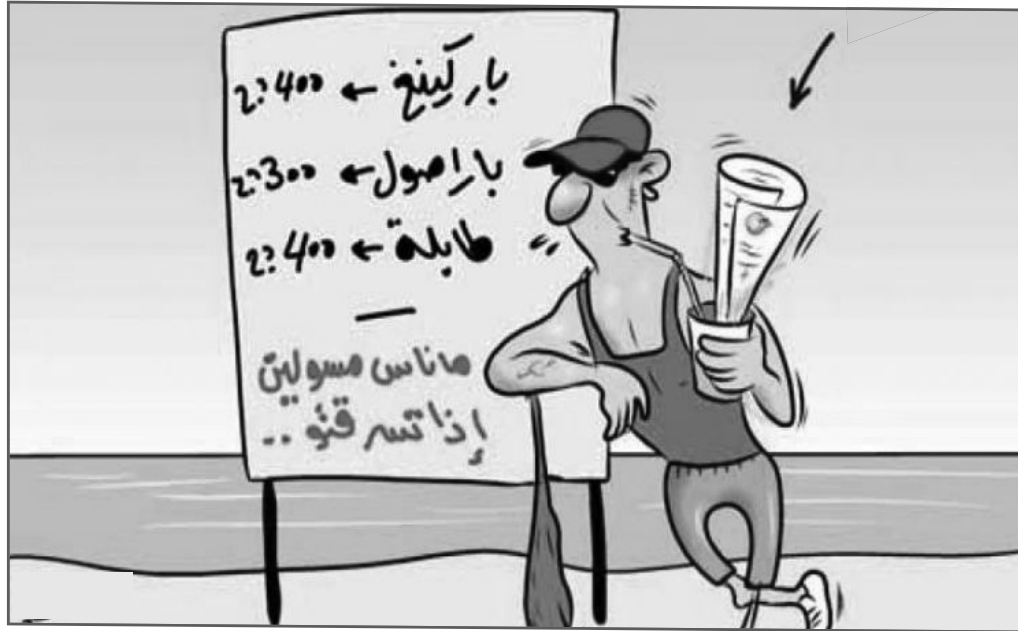 باركينغ ← 400 دج
باراصول ← 300 دج
طابلة ← 400 دج
ماناس مسولين
إذا تسرقتو ..